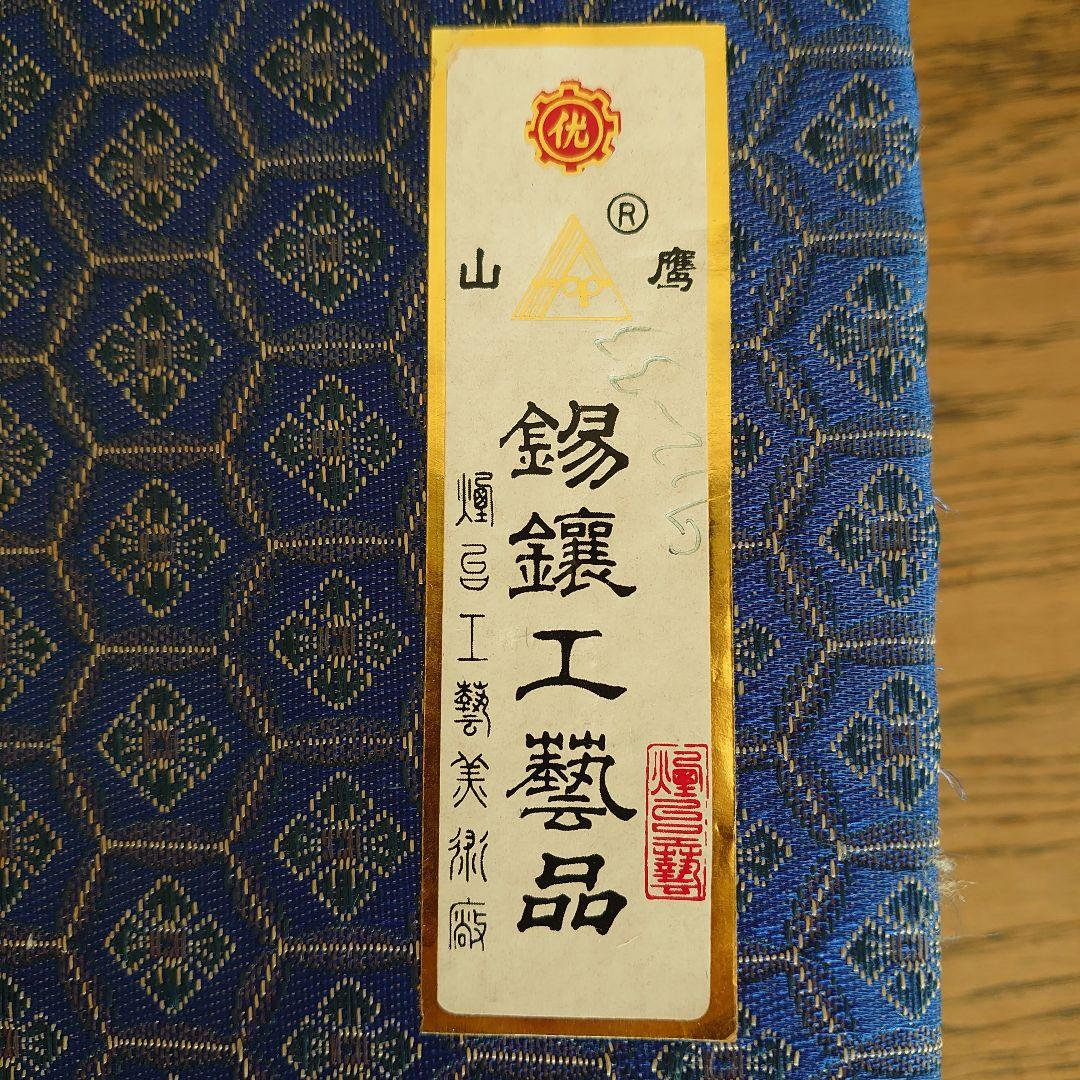 优
®
山鹰
錫鑲工藝品
煙台工藝美術廠
煙台工藝